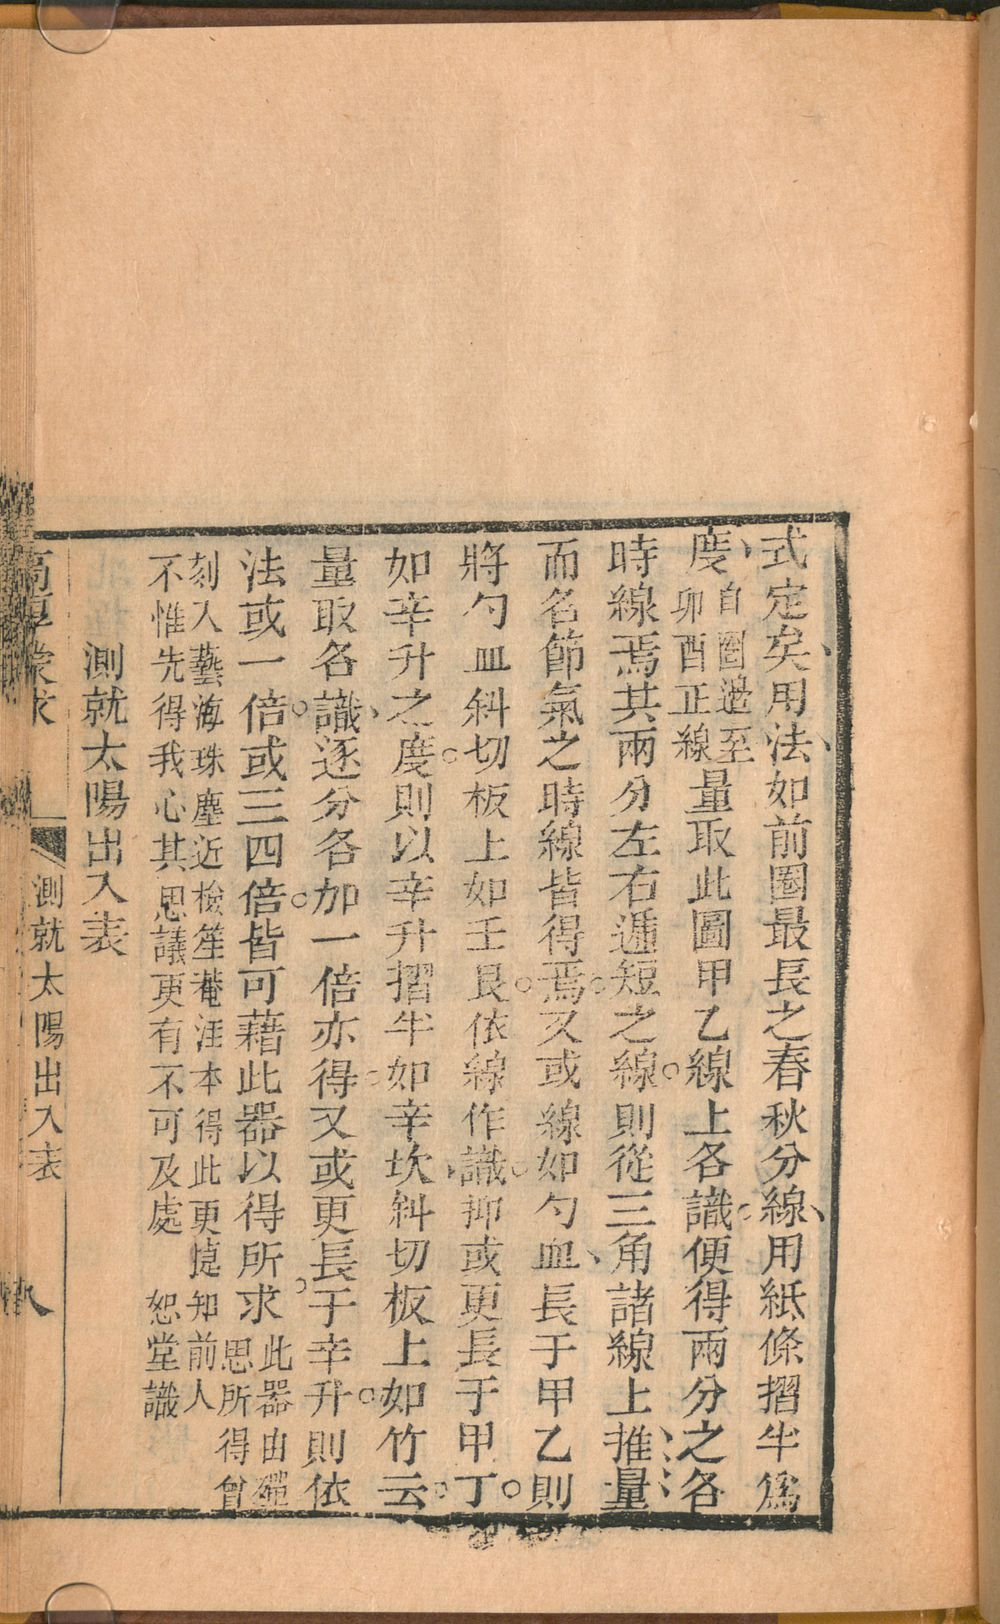 式定矣用法如前圈最長之春秋分線用紙條摺半爲
度自圈邊至
卯酉正線量取此圖甲乙線上各識便得兩分之各
時線焉其兩分左右遞短之線則從三角諸線上推量
而名節氣之時線皆得焉又或線如勺血長于甲乙則
將勺血斜切板上如壬艮依線作識抑或更長于甲丁
如辛升之度則以辛升摺半如辛坎斜切板上如竹云
量取各識逐分各加一倍亦得又或更長于辛升則依
法或一倍或三四倍皆可藉此器以得所求此器由
思所得曾
刻入藝海珠塵近檢笙菴汪本得此更 知前人
不惟先得我心其思議更有不可及處 恕堂識
測就太陽出入表
高厚蒙求 測就太陽出入表 八